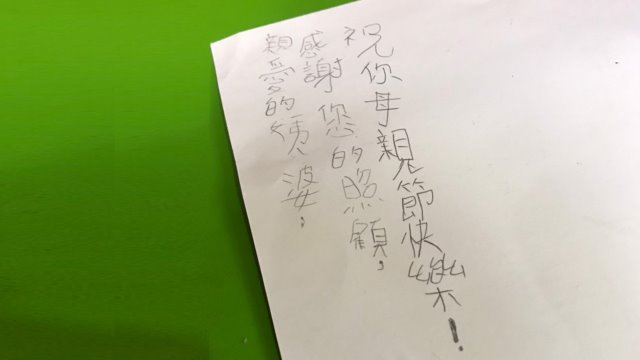 親愛的姨婆!
感謝您的照顧,
祝你母親節快樂!